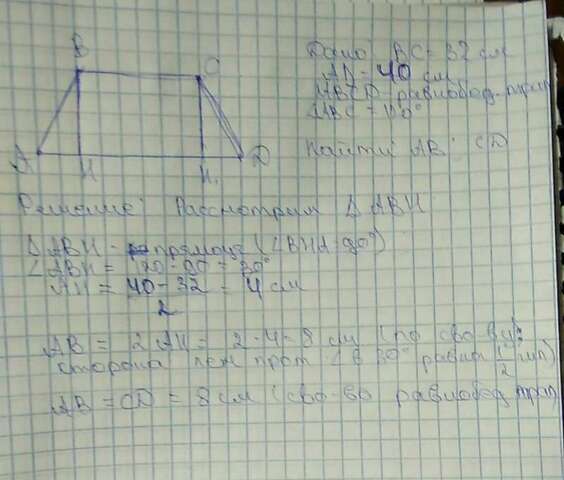 B C
A H H₁ D
Дано: BC = 32 см
AD = 40 см
ABCD - равнобед. трап
∠ABC = 120°
Найти: AB; CD
Решение: Рассмотрим Δ ABH
Δ ABH - прямоуг (∠BHA = 90°)
∠ABH = 120 - 90 = 30°
AH = 40 - 32 / 2 = 4 см
AB = 2 AH = 2 · 4 = 8 см (по св-ву:
сторона леж прот ∠ в 30° равна 1/2 гип)
AB = CD = 8 см (св-во равнобед трап)